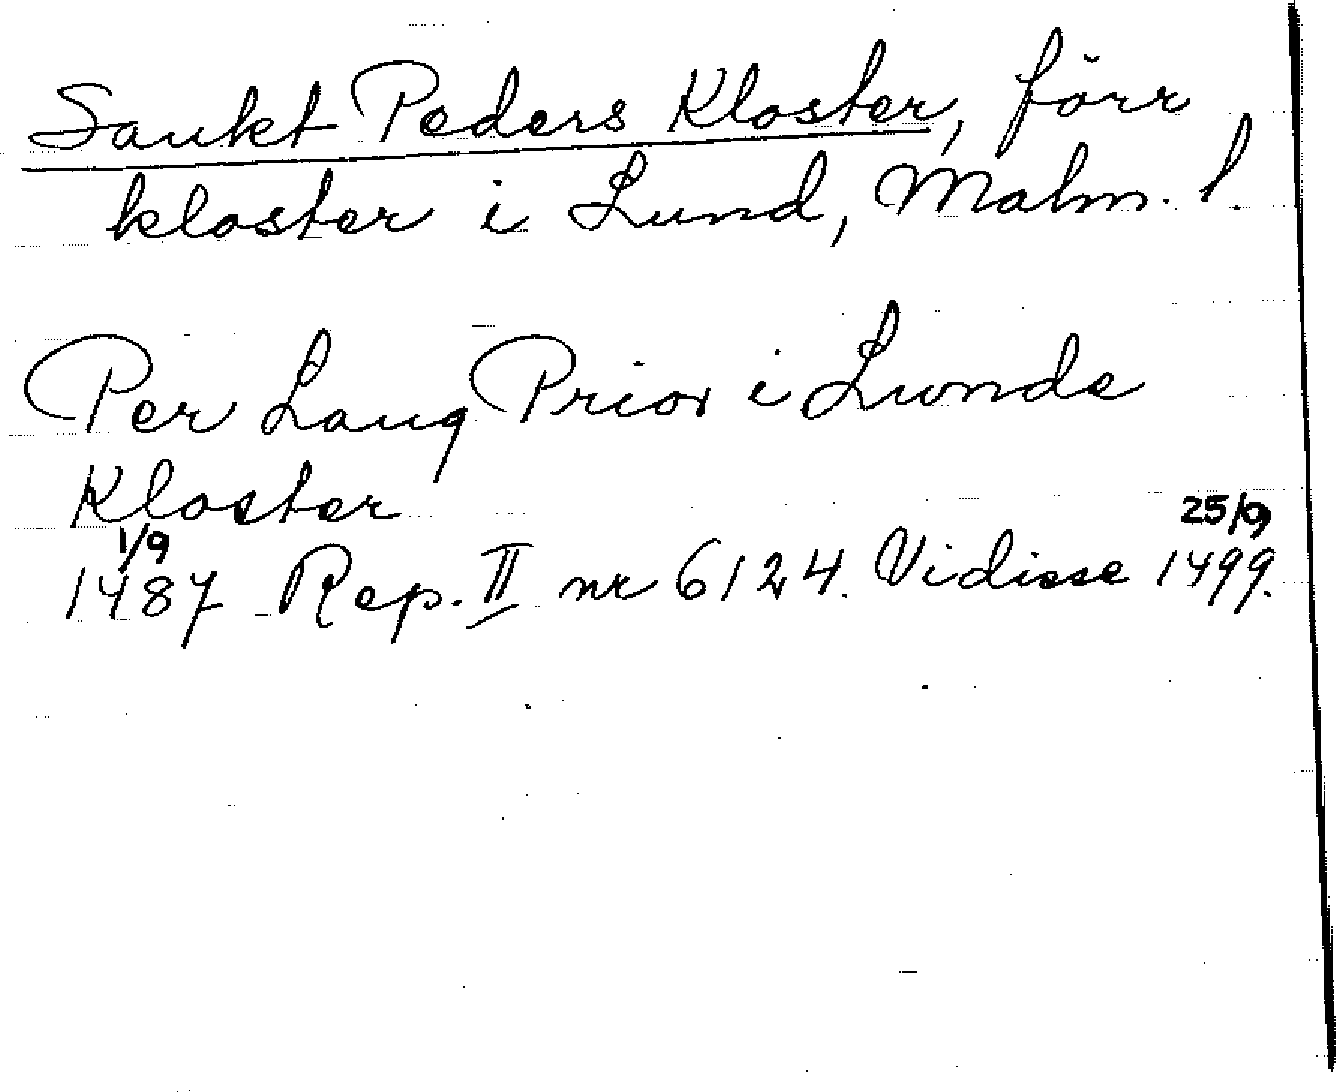 Sankt Peders Kloster, förr
kloster i Lund, Malm. l.
Per Laug Prior i Lunde
Kloster
1/9 25/9
1487 Rep. II nr 6124. Vidisse 1499.